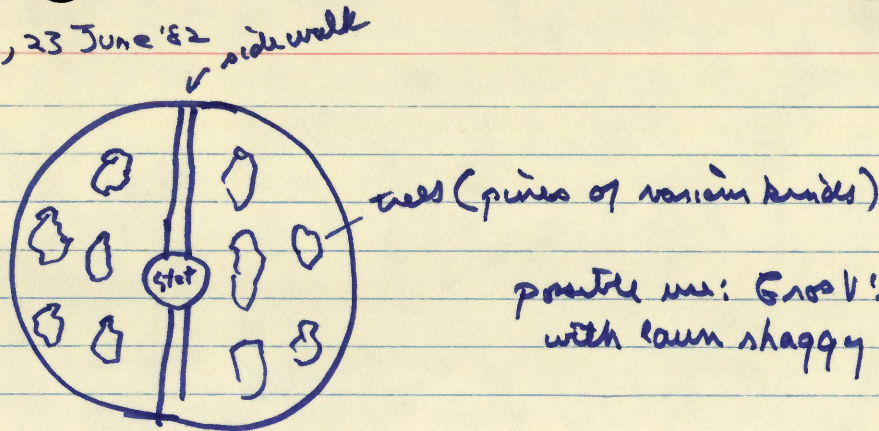 , 23 June '82
sidewalk
trees (pines of various kinds)
stat
possible use:
with lawn shaggy